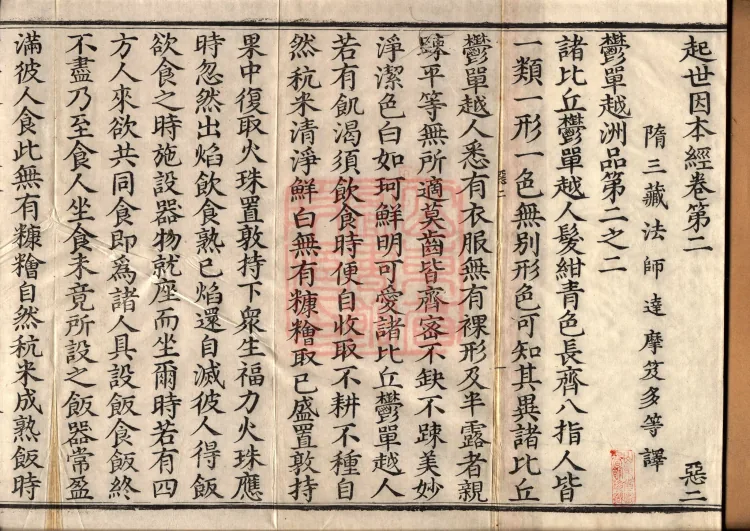 起世因本經卷第二 惡二
隋三藏法師達摩笈多等譯
鬱單越洲品第二之二
諸比丘鬱單越人髮紺青色長齊八指人皆
一類一形一色無別形色可知其異諸比丘
惡二
鬱單越人悉有衣服無有裸形及半露者親
踈平等無所適莫齒皆齊密不缺不踈美妙
淨潔色白如珂鮮明可愛諸比丘鬱單越人
若有飢渴須飲食時便自收取不耕不種自
然秔米清淨鮮白無有糠糩取已盛置敦持
果中復取火珠置敦持下衆生福力火珠應
時忽然出焰飲食熟已焰還自滅彼人得飯
欲食之時施設器物就座而坐爾時若有四
方人來欲共同食即爲諸人具設飯食飯終
不盡乃至食人坐食未竟所設之飯器常盈
滿彼人食此無有糠糩自然秔米成熟飯時